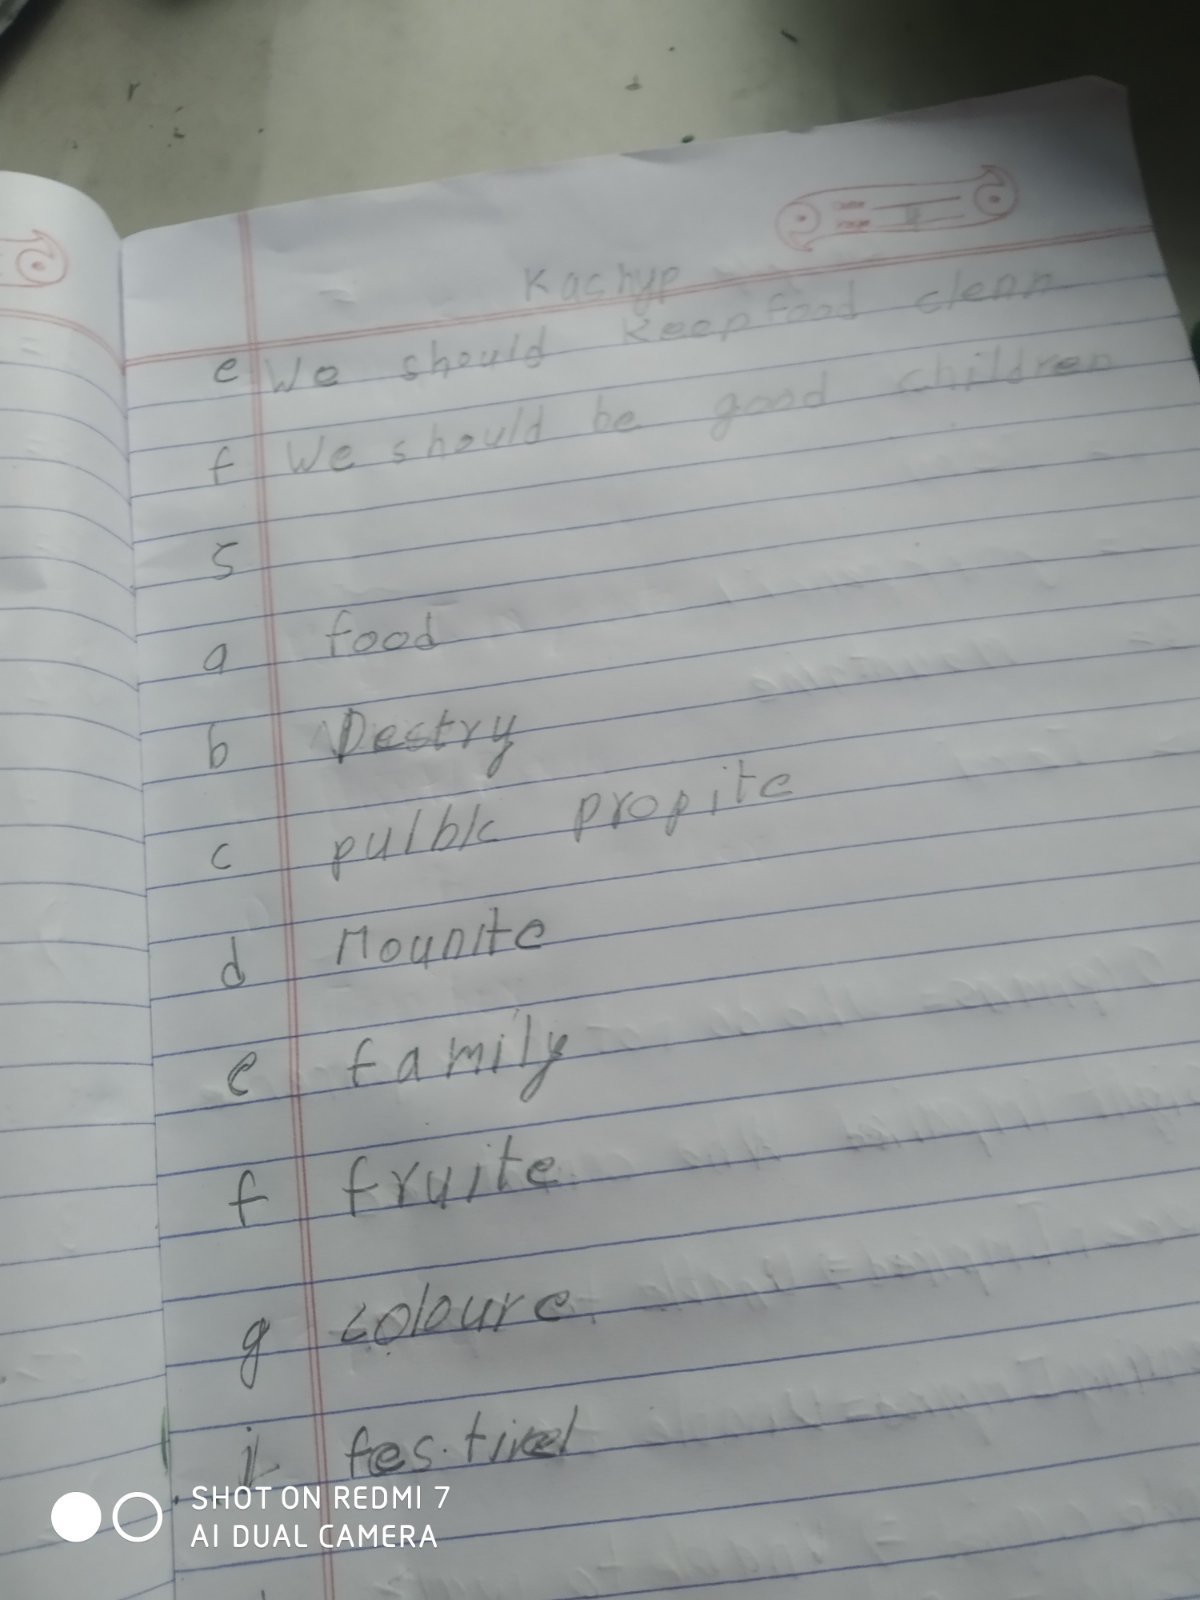 Kachyp
e We should keep food clenn
f We should be good children
5
a food
b Destry
c pulblc propite
d Mounite
e family
f fruite
g coloure
i fes.tivel
SHOT ON REDMI 7
AI DUAL CAMERA